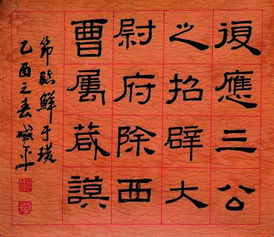 復應三公
之招辟大
尉府除西
曹属蔵謨
節臨鮮于璜
乙酉之春